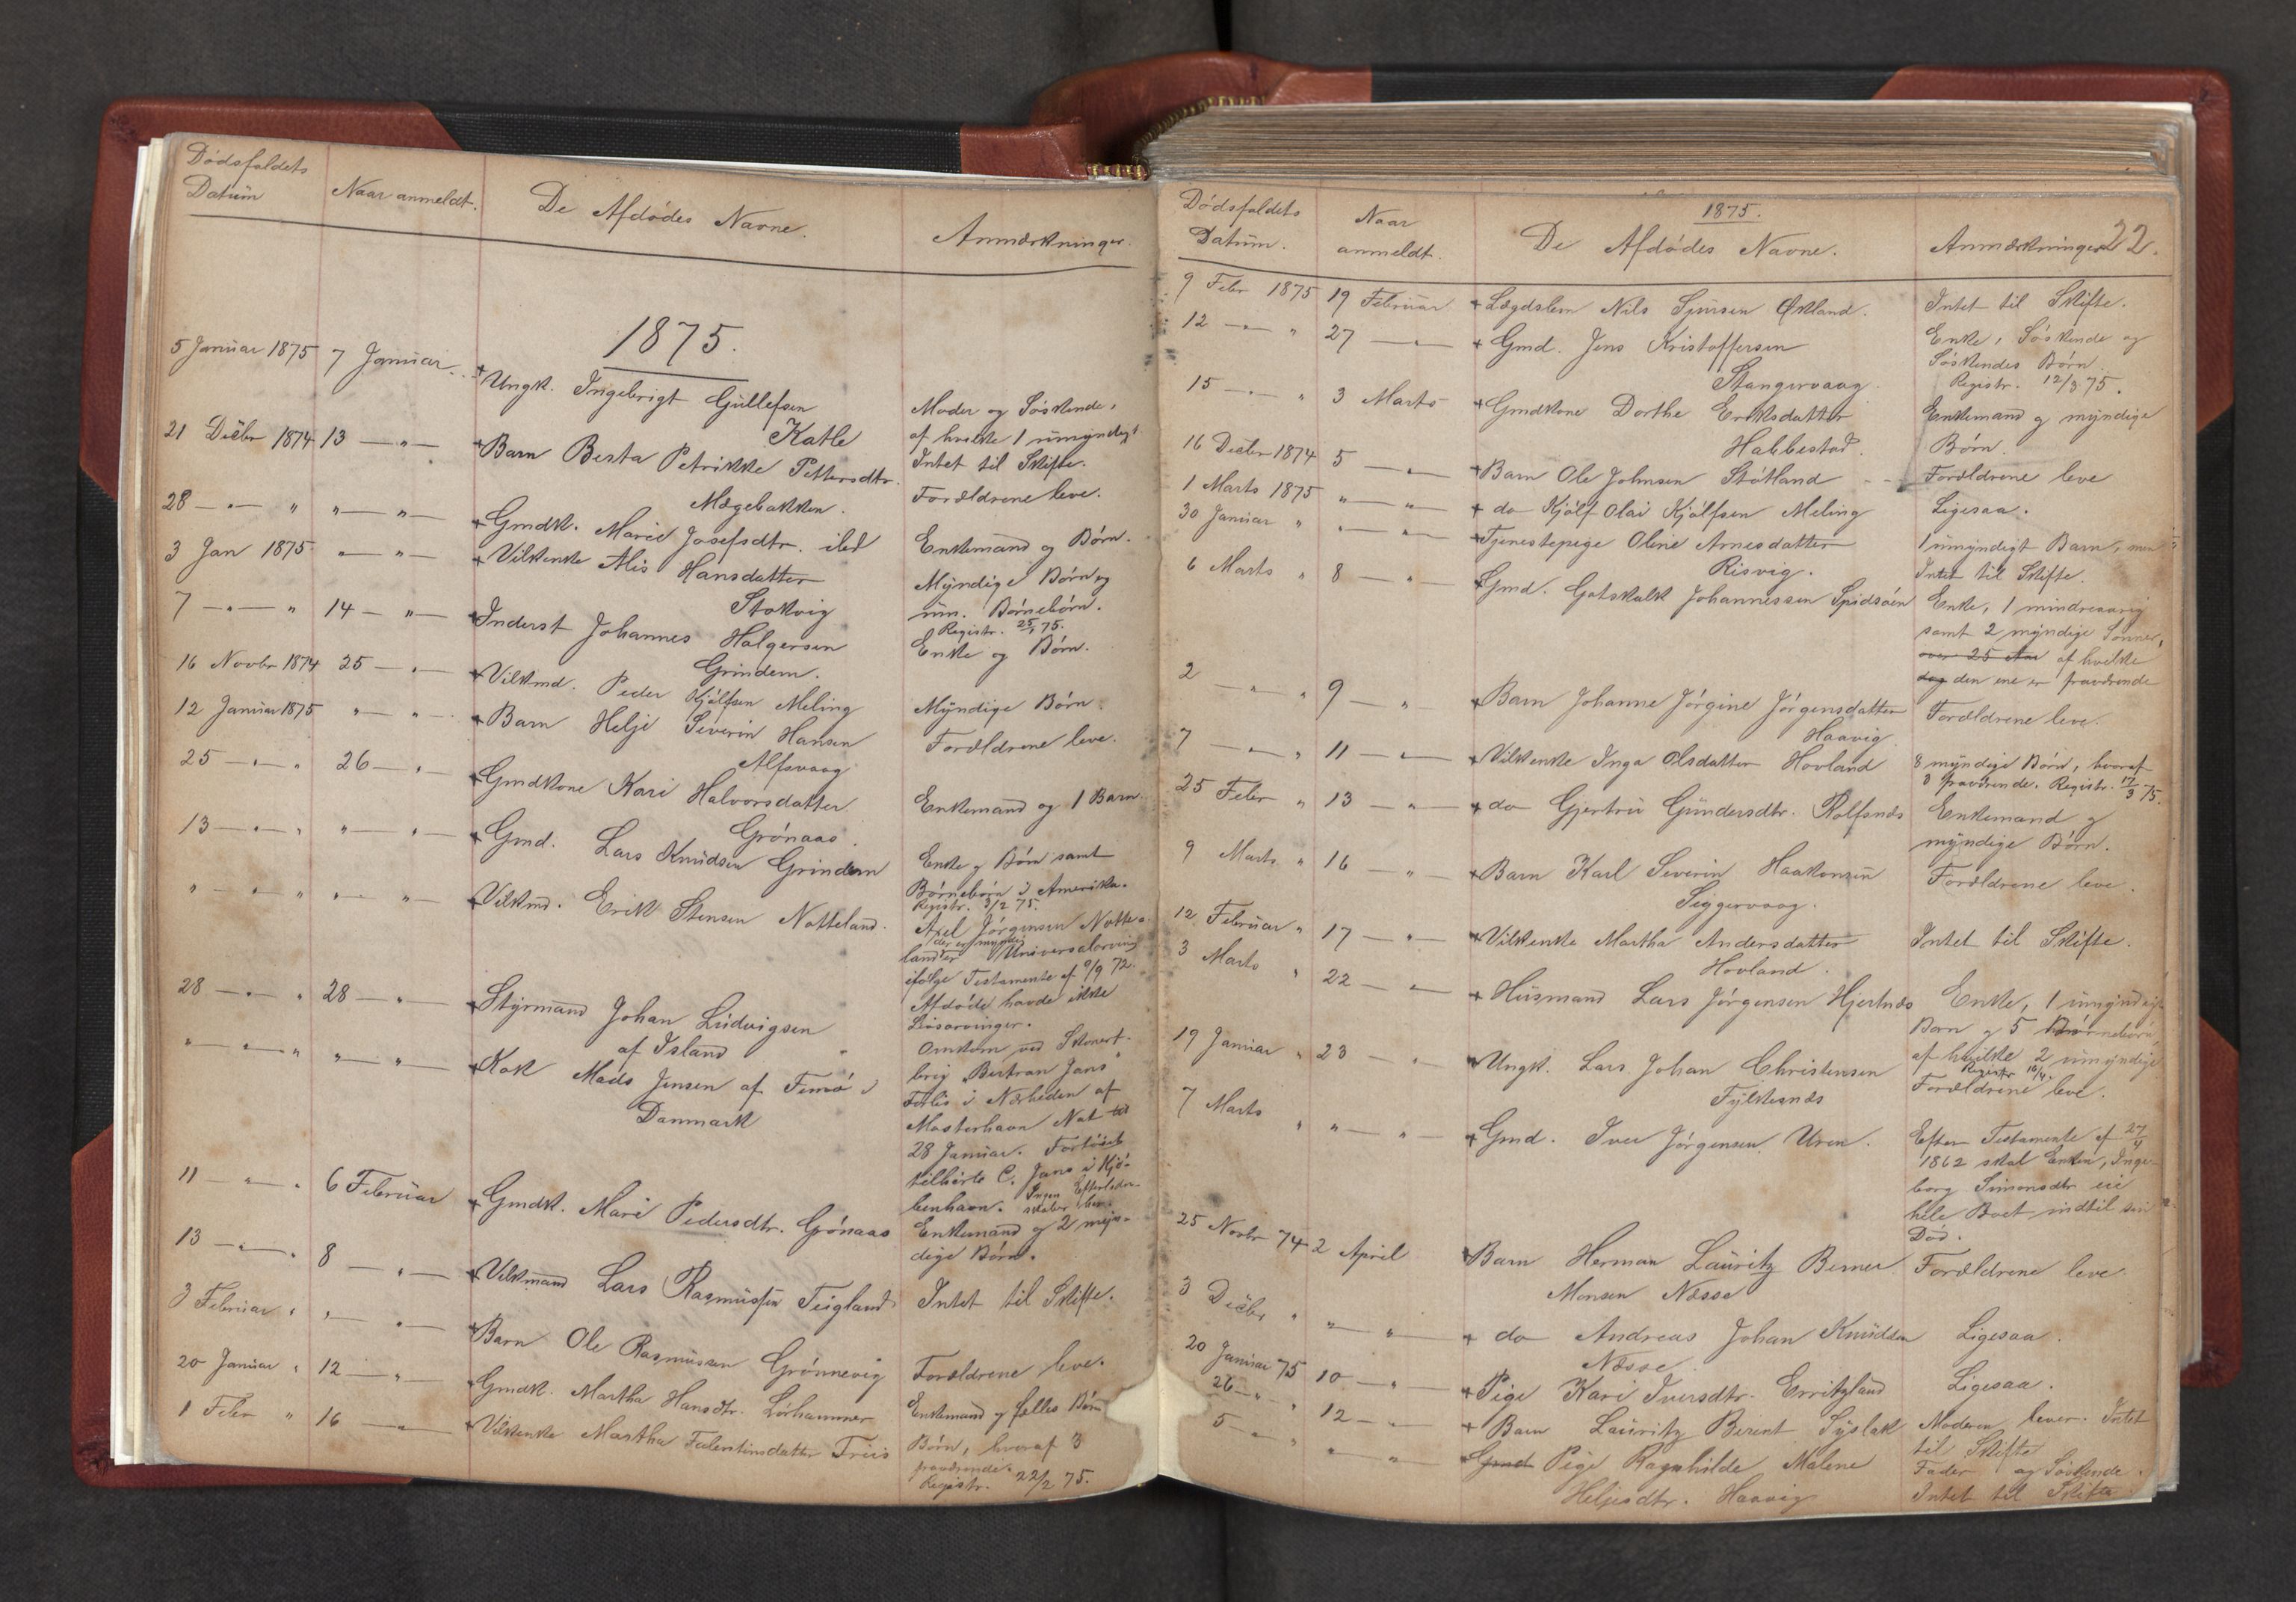 Dødsfaldets
Datum
Naar anmeldt.
De Afdødes Navne.
Anmærkninger.
1875.
5 Januar 1875 7 Januar. Ungk. Ingebrigt Gullefsen
Katle
Moder og Søskende,
af hvilke 1 umyndigt
Intet til Skifte.
21 Decbr 1874 13 — " — Barn Berta Petrikke Pettersdtr.
Mægebakken.
Forældrene leve.
28 — " — " " — " — Gmdk. Marie Josefsdtr. ibd
Enkemand og Børn.
3 Jan 1875 " — " — Vilkenke Alis Hansdatter
Stokvig
Myndige Børn og
um. Børnebørn.
Registr. 25/1 75.
7 — " — " 14 — " — Inderst Johannes Halgersen
Grindem.
Enke og Børn.
16 Novbr 1874 25 — " — Vilkmd. Peder Kjølfsen Meling
Myndige Børn.
12 Januar 1875 " — " — Barn Helje Severin Hansen
Alfsvaag
Forældrene leve.
25 — " — " 26 — " — Gmdkone Kari Halvorsdatter
Grønaas.
Enkemand og 1 Barn
13 — " — " " — " — Gmd. Lars Knudsen Grindem
Enke og Børn samt
Børnebørn i Amerika.
Registr. 3/2 75.
" — " — " " — " — Vilkmd. Erik Stensen Notteland.
Axel Jørgensen Notte-
der er myndig
land er Universalarving
ifølge Testamente af 9/9 72.
Afdøde havde ikke
Livsarvinger.
28 — " — " 28 — " — Styrmand Johan Ludvigsen
af Island
Omkom ved Skonert-
brig "Bertran Jans"
" — " — " " — " Kok Mads Jensen af Femø i
Danmark
Forlis i Nærheden af
Mosterhavn Nat til
28 Januar. Fartøiet
tilhørte C. Jans i Kjø-
benhavn. Ingen Efterladen-
skaber
11 — " — " 6 Februar Gmdk. Mari Pedersdtr. Grønaas
Enkemand og 2 myn-
dige Børn.
13 — " — " 8 — " — Vilkmand Lars Rasmussen Teigland
Intet til Skifte.
3 Februar " " — " — Barn Ole Rasmussen Grønnevig
Forældrene leve.
20 Januar " 12 — " — Gmdk. Martha Hansdtr. Lørhammer
Enkemand og fælles Børn
1 Febr " 16 — " — Vilkenke Martha Falentinsdatter Friis
Børn, hvoraf 3
fraværende.
Registr. 22/2 75.
22.
1875.
Dødsfaldets
Datum.
Naar
anmeldt.
De Afdødes Navne.
Anmærkninger
9 Febr 1875 19 Februar Lægdslem Nils Sjursen Økland.
Intet til Skifte.
12 — " — " 27 — " — Gmd. Jens Kristoffersen
Stangervaag.
Enke, Søskende og
Søskendes Børn.
Registr. 12/3 75.
15 — " — " 3 Marts Gmdkone Dorthe Eriksdatter
Habbestad.
Enkemand og myndige
Børn.
16 Decbr 1874 5 — " — Barn Ole Johnsen Støtland
Forældrene leve
1 Marts 1875 " — " — do Kjølf Olai Kjølfsen Meling
Ligesaa.
30 Januar " " — " — Tjenestepige Oline Arnesdatter
Risvig.
1 umyndigt Barn, men
Intet til Skifte.
6 Marts " 8 — " — Gmd. Gotskalk Johannessen Spidsøen
Enke, 1 mindreaarig
samt 2 myndige Sønner,
over 25 Aar af hvilke
dog den ene er fraværende
2 — " — " 9 — " — Barn Johanne Jørgine Jørgensdatter
Haavig
Forældrene leve.
7 — " — " 11 — " — Vilkenke Inga Olsdatter Hovland
8 myndige Børn, hvoraf
3 fraværende. Registr. 17/3 75.
25 Febr " 13 — " — do Gjertru Gundersdtr. Rolfsnæs
Enkemand og
myndige Børn.
9 Marts " 16 — " — Barn Karl Severin Haakonsen
Siggervaag.
Forældrene leve.
12 Februar " 17 — " — Vilkenke Martha Andersdatter
Hovland.
Intet til Skifte.
3 Marts " 22 — " — Husmand Lars Jørgensen Hjertnæs
Enke, 1 umyndigt
Barn og 5 Børnebørn,
af hvilke 2 umyndige
Registr 16/4.
19 Januar " 23 — " — Ungk. Lars Johan Christensen
Fylkesnæs
Forældrene leve.
7 Marts " " — " — Gmd. Iver Jørgensen Uren.
Efter Testamente af 27/4
1862 skal Enken, Inge-
borg Simonsdtr eie
hele Boet indtil sin
Død.
25 Novbr 74 2 April Barn Herman Lauritz Berner
Monsen Næsse
Forældrene leve.
3 Decbr " " — " — do Andreas Johan Knudsen
Næsse.
Ligesaa.
20 Januar 75 10 — " — Pige Kari Iversdtr. Erritzland
Ligesaa.
26 — " — " 12 — " — Barn Lauritz Berent Syslak
Moderen lever. Intet
til Skifte
5 — " — " " — " — Gmd Pige Ragnhilde Malene
Heljesdtr. Haavig
Fader og Søskende.
Intet til Skifte